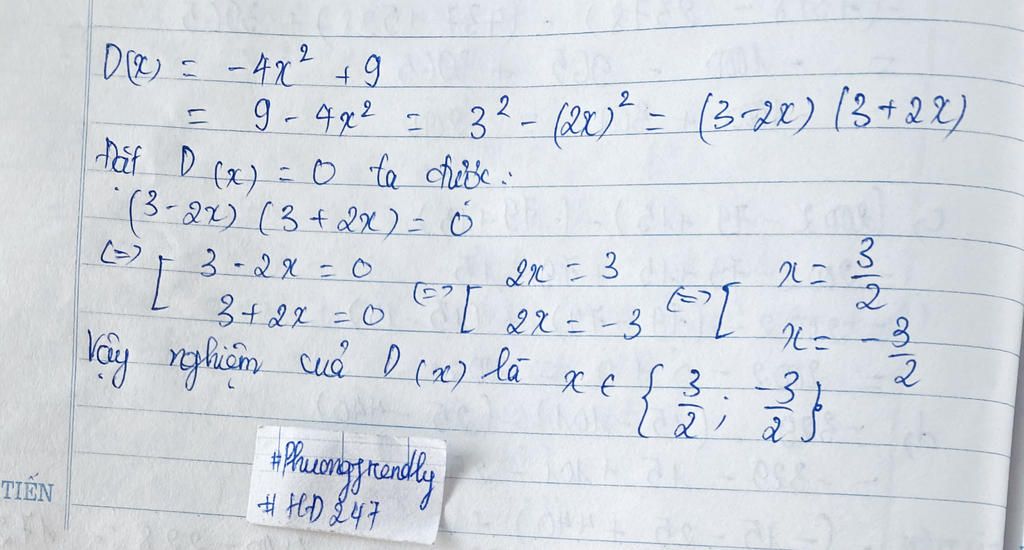 D(x) = -4x² + 9
= 9 - 4x² = 3² - (2x)² = (3-2x) (3+2x)
Đặt D(x) = 0 ta được:
(3-2x) (3+2x) = 0
(=> [ 3-2x = 0 (=> [ 2x = 3 (=> [ x = 3/2
3+2x = 0 2x = -3 x = -3/2
Vậy nghiệm của D(x) là x ∈ {3/2; -3/2}
#Phuongfrendly
#HD247
TIẾN